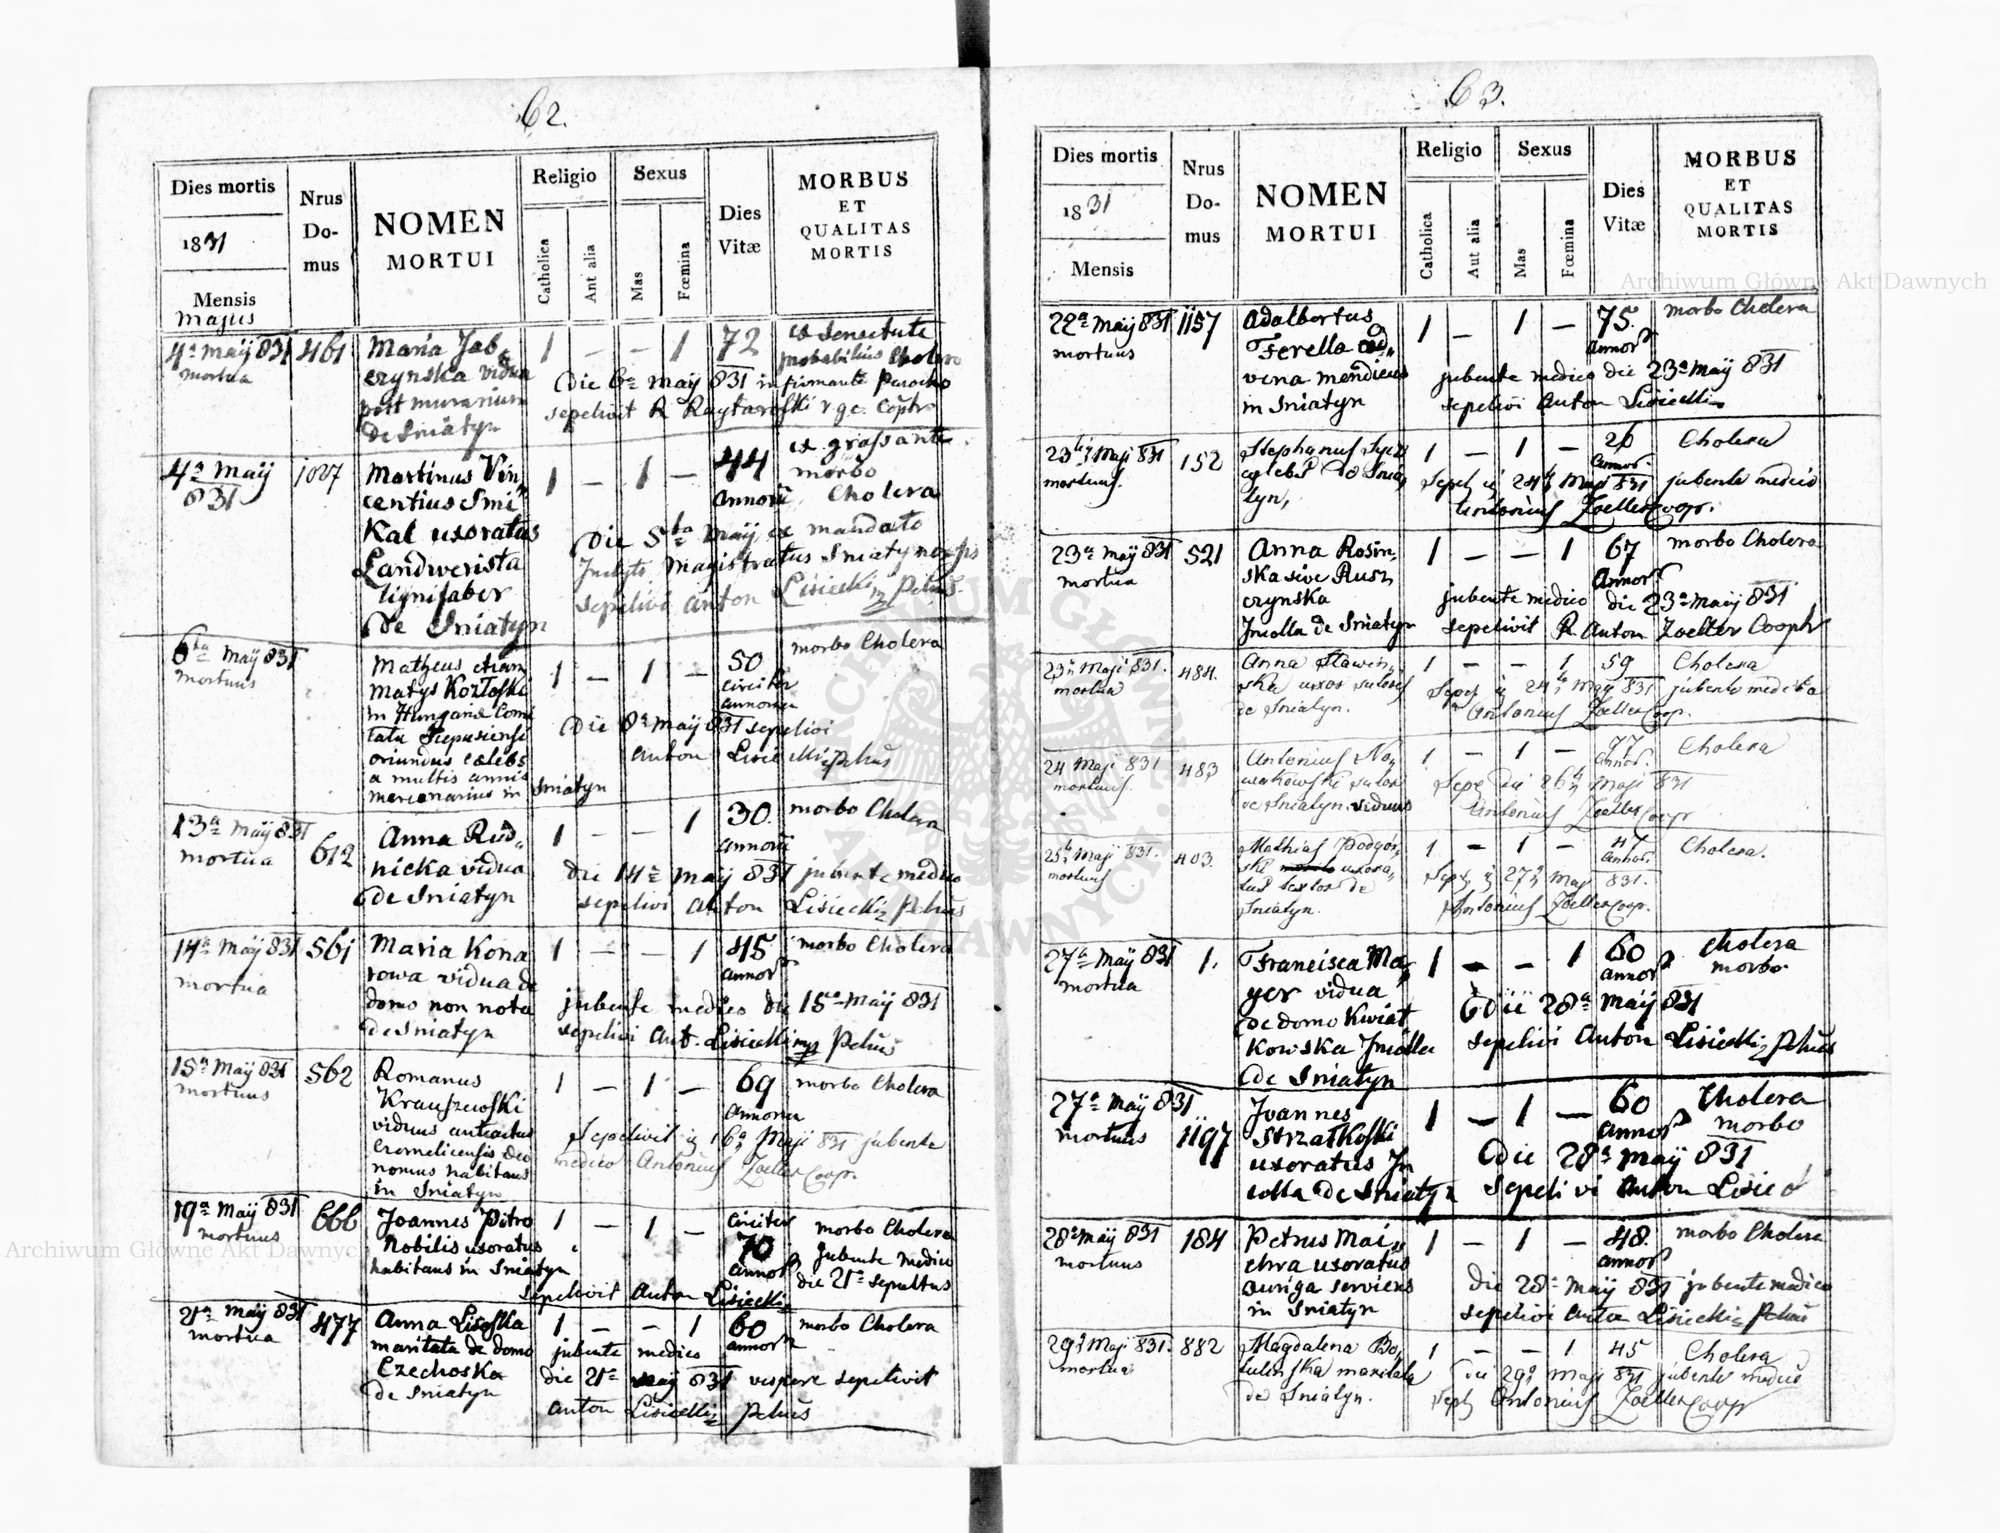 62.
Dies mortis
1831
Mensis
majus
Nrus
Do-
mus
NOMEN
MORTUI
Religio
Catholica
Aut alia
Sexus
Mas
Fœmina
Dies
Vitæ
MORBUS
ET
QUALITAS
MORTIS
4ta Maÿ 831
mortua
461
Maria Jab
czynska vidua
post murarium
de Sniatyn
1 — — 1
72
ex senectute
probabilius Cholera
Die 6ta Maÿ 831 infirmante Parocho
sepelivit R Raytaroski
4ta Maÿ
831
1087
Martinus Vin
centius Smi
kal uxoratus
Landwerista
lignifaber
de Sniatyn
1 — 1 —
44
annorū
ex grassante
morbo
Cholera
Die 5ta Maÿ ex mandato
Inclyti Magistratus Sniatynensis
sepelivi Anton Lisiecki
6ta Maÿ 831
mortuus
Matheus
Matys Kozłoski
in Hungaria Comi
tatu Scepusiensi
oriundus cælebs
a multis annis
mercenarius in Sniatyn
1 — 1 —
50
circiter
annorum
morbo Cholera
Die 8a Maÿ 831 sepelivi
Anton Lisiecki
13a Maÿ 831
mortua
612
Anna Rud„
nicka vidua
de Sniatyn
1 — — 1
30.
annorū
morbo Cholera
die 14ta Maÿ 831 jubente medico
sepelivi Anton Lisiecki
14ta Maÿ 831
mortua
561
Maria Kona
rowa vidua de
domo non nota
de Sniatyn
1 — — 1
45
annor
morbo Cholera
jubente medico die 15ta Maÿ 831
sepelivi Ant. Lisiecki
15ta Maÿ 831
mortuus
562
Romanus
Krauszewski
viduus antiactus
nomus habitans
in Sniatyn
1 — 1 —
69
annorum
morbo Cholera
Sepelivit 16a Maji 831 jubente
medico Antonius Zoeller Coop.
19a Maÿ 831
mortuus
666
Joannes Pitro
Nobilis uxoratus
habitans in Sniatyn
1 — 1 —
circiter
70
annor
morbo Cholera
jubente medico
die 21a sepultus
sepelivit Anton Lisiecki
21a Maÿ 831
mortua
477
Anna Lisoska
maritata de domo
Czechoska
de Sniatyn
1 — — 1
60
annor
morbo Cholera
jubente medico
die 21a Maÿ 831 vespere sepelivit
Anton Lisiecki
63.
Dies mortis
1831
Mensis
Nrus
Do-
mus
NOMEN
MORTUI
Religio
Catholica
Aut alia
Sexus
Mas
Fœmina
Dies
Vitæ
MORBUS
ET
QUALITAS
MORTIS
22a Maÿ 831
mortuus
1157
Adalbertus
Ferella ad„
vena mendicus
in Sniatyn
1 — 1 —
75.
annor
morbo Cholera
jubente medico die 23a Maÿ 831
sepelivi Anton Lisiecki
23tia Maji 831
mortuus.
152
Stephanus
cælebs de Snia
tyn,
1 — 1 —
26
annor.
Cholera
24a Maji 831 jubente medico
Antonius Zoeller Coop.
23a Maÿ 831
mortua
521
Anna Rosin„
ska sive Rusz
czynska
Incolla de Sniatyn
1 — — 1
67
Annor
morbo Cholera
jubente medico die 23a Maÿ 831
sepelivit R Anton Zoeller Cooptr
23a Maji 831.
mortua
484.
Anna Slawin„
ska uxor sutoris
de Sniatyn.
1 — — 1
59
Cholera
24a Maji 831 jubente medico
Antonius Zoeller Coop.
24 Maji 831
mortuus.
483
Antonius No„
wakowski sutor
de Sniatyn. viduus
1 — 1 —
77
annor.
Cholera
Sepe die 26a Maji 831
Antonius Zoeller Coop
25a Maji 831.
mortuus
403.
Mathias Podgór„
ski uxora„
tus textor de
Sniatyn.
1 — 1 —
47
annor.
Cholera.
27a Maji 831.
Antonius Zoeller Coop.
27a Maÿ 831
mortua
1.
Francisca Ma„
yer vidua
de domo Kwiat
kowska Incolla
de Sniatyn
1 — — 1
60
annor
Cholera
morbo
die 28a Maÿ 831
sepelivi Anton Lisiecki
27a Maÿ 831
mortuus
1197
Joannes
Strzałkoski
uxoratus In
colla de Sniatyn
1 — 1 —
60
annor
Cholera
morbo
die 28a Maÿ 831
sepelivi Anton Lisiec
28a Maÿ 831
mortuus
184
Petrus Mai„
chra uxoratus
auriga serviens
in Sniatyn
1 — 1 —
48.
annor
morbo Cholera
die 28a Maÿ 831 jubente medico
sepelivi Anton Lisiecki
29a Maji 831.
mortua
882
Magdalena Bo„
tulinska maritata
de Sniatyn.
1 — — 1
45
Cholera
die 29a Maji 831 jubente medico
Antonius Zoeller Coop
Archiwum Główne Akt Dawnych
Archiwum Główne Akt Dawnych
ARCHIWUM GŁÓWNE AKT DAWNYCH